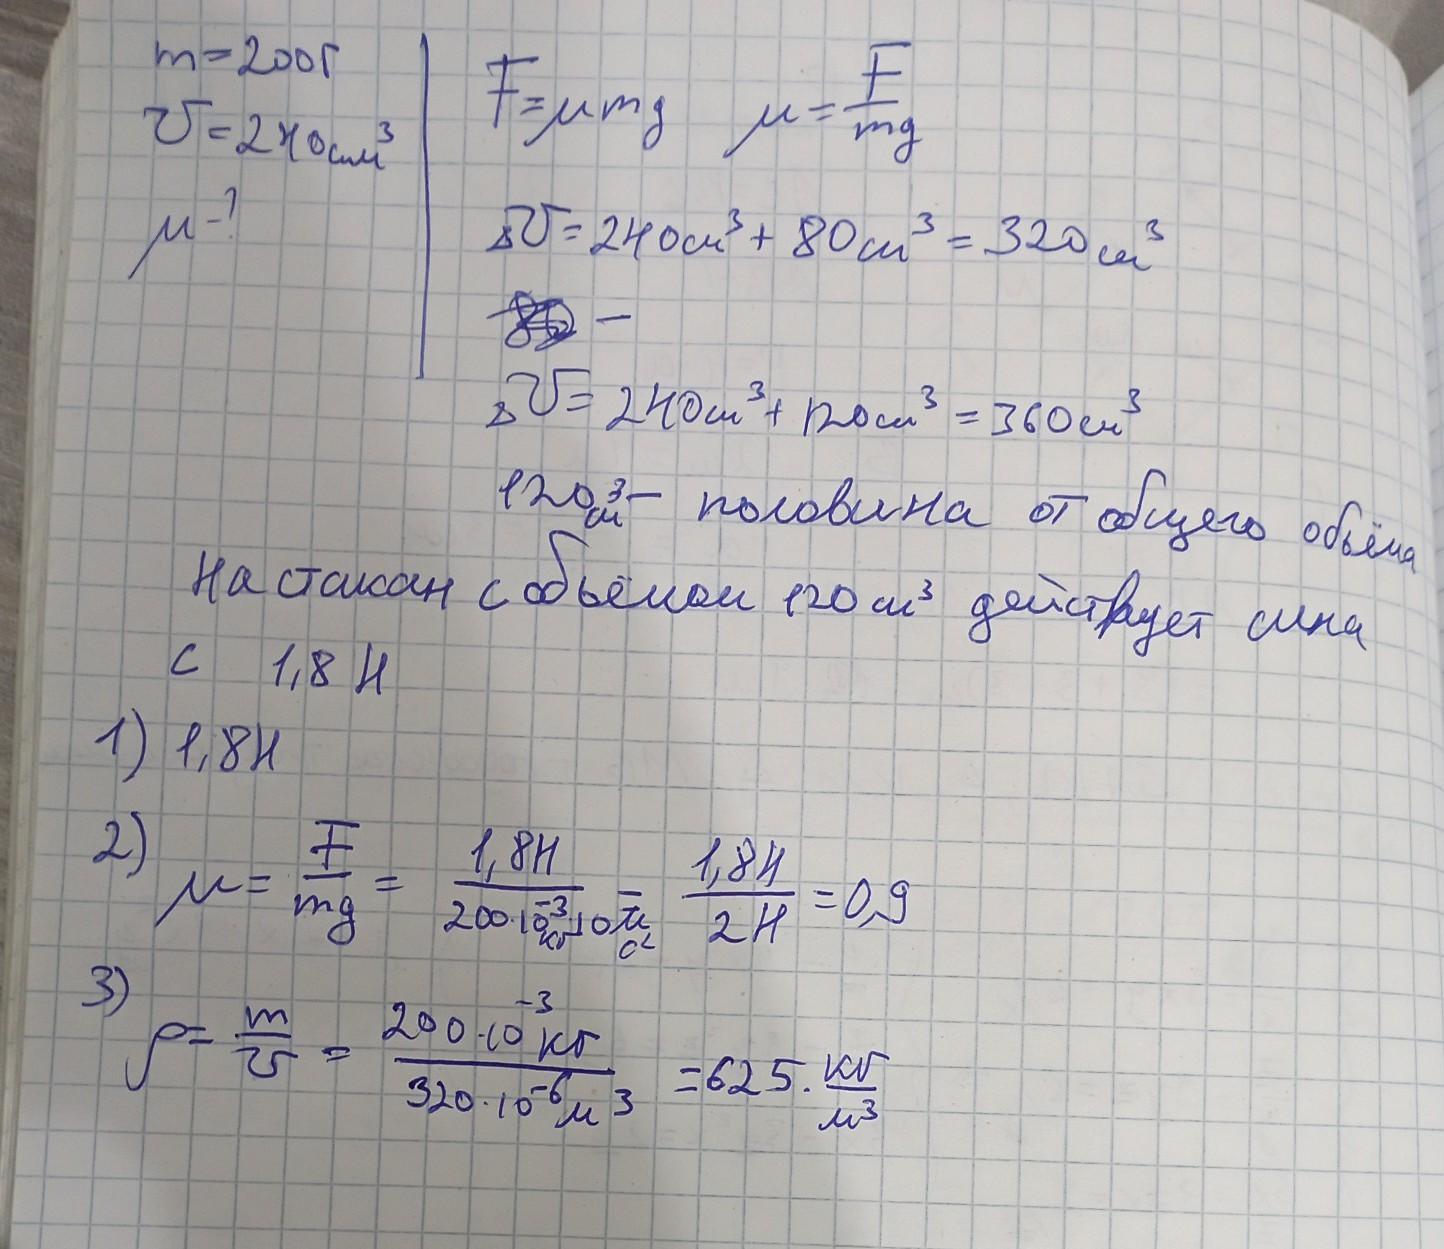 m=200г
V=240см³
μ-?
F=μmg μ=F/mg
ΔV=240см³+80см³=320см³
-
ΔV=240см³+120см³=360см³
120см³- половина от общего объёма
На стакан с объёмом 120см³ действует сила
с 1,8Н
1) 1,8Н
2) μ=F/mg=1,8Н/200·10⁻³кг·10м/с²=1,8Н/2Н=0,9
3) ρ=m/V=200·10⁻³кг/320·10⁻⁶м³=625·кг/м³